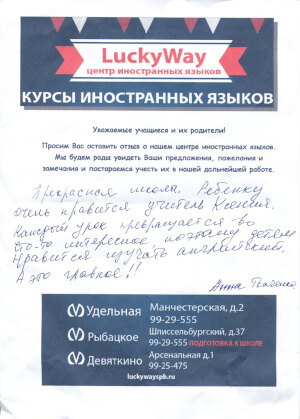 LuckyWay
центр иностранных языков
КУРСЫ ИНОСТРАННЫХ ЯЗЫКОВ
Уважаемые учащиеся и их родители!
Просим Вас оставить отзыв о нашем центре иностранных языков.
Мы будем рады увидеть Ваши предложения, пожелания и
замечания и постараемся учесть их в нашей дальнейшей работе.
Прекрасная школа. Ребенку
очень нравится учитель Ксения.
Каждый урок превращается во
что-то интересное, поэтому детям
нравится изучать английский.
А это главное!!
Анна
Удельная
Манчестерская, д.2
99-29-555
Рыбацкое
Шлиссельбургский, д.37
99-29-555 ПОДГОТОВКА К ШКОЛЕ
Девяткино
Арсенальная д.1
99-25-475
luckywayspb.ru